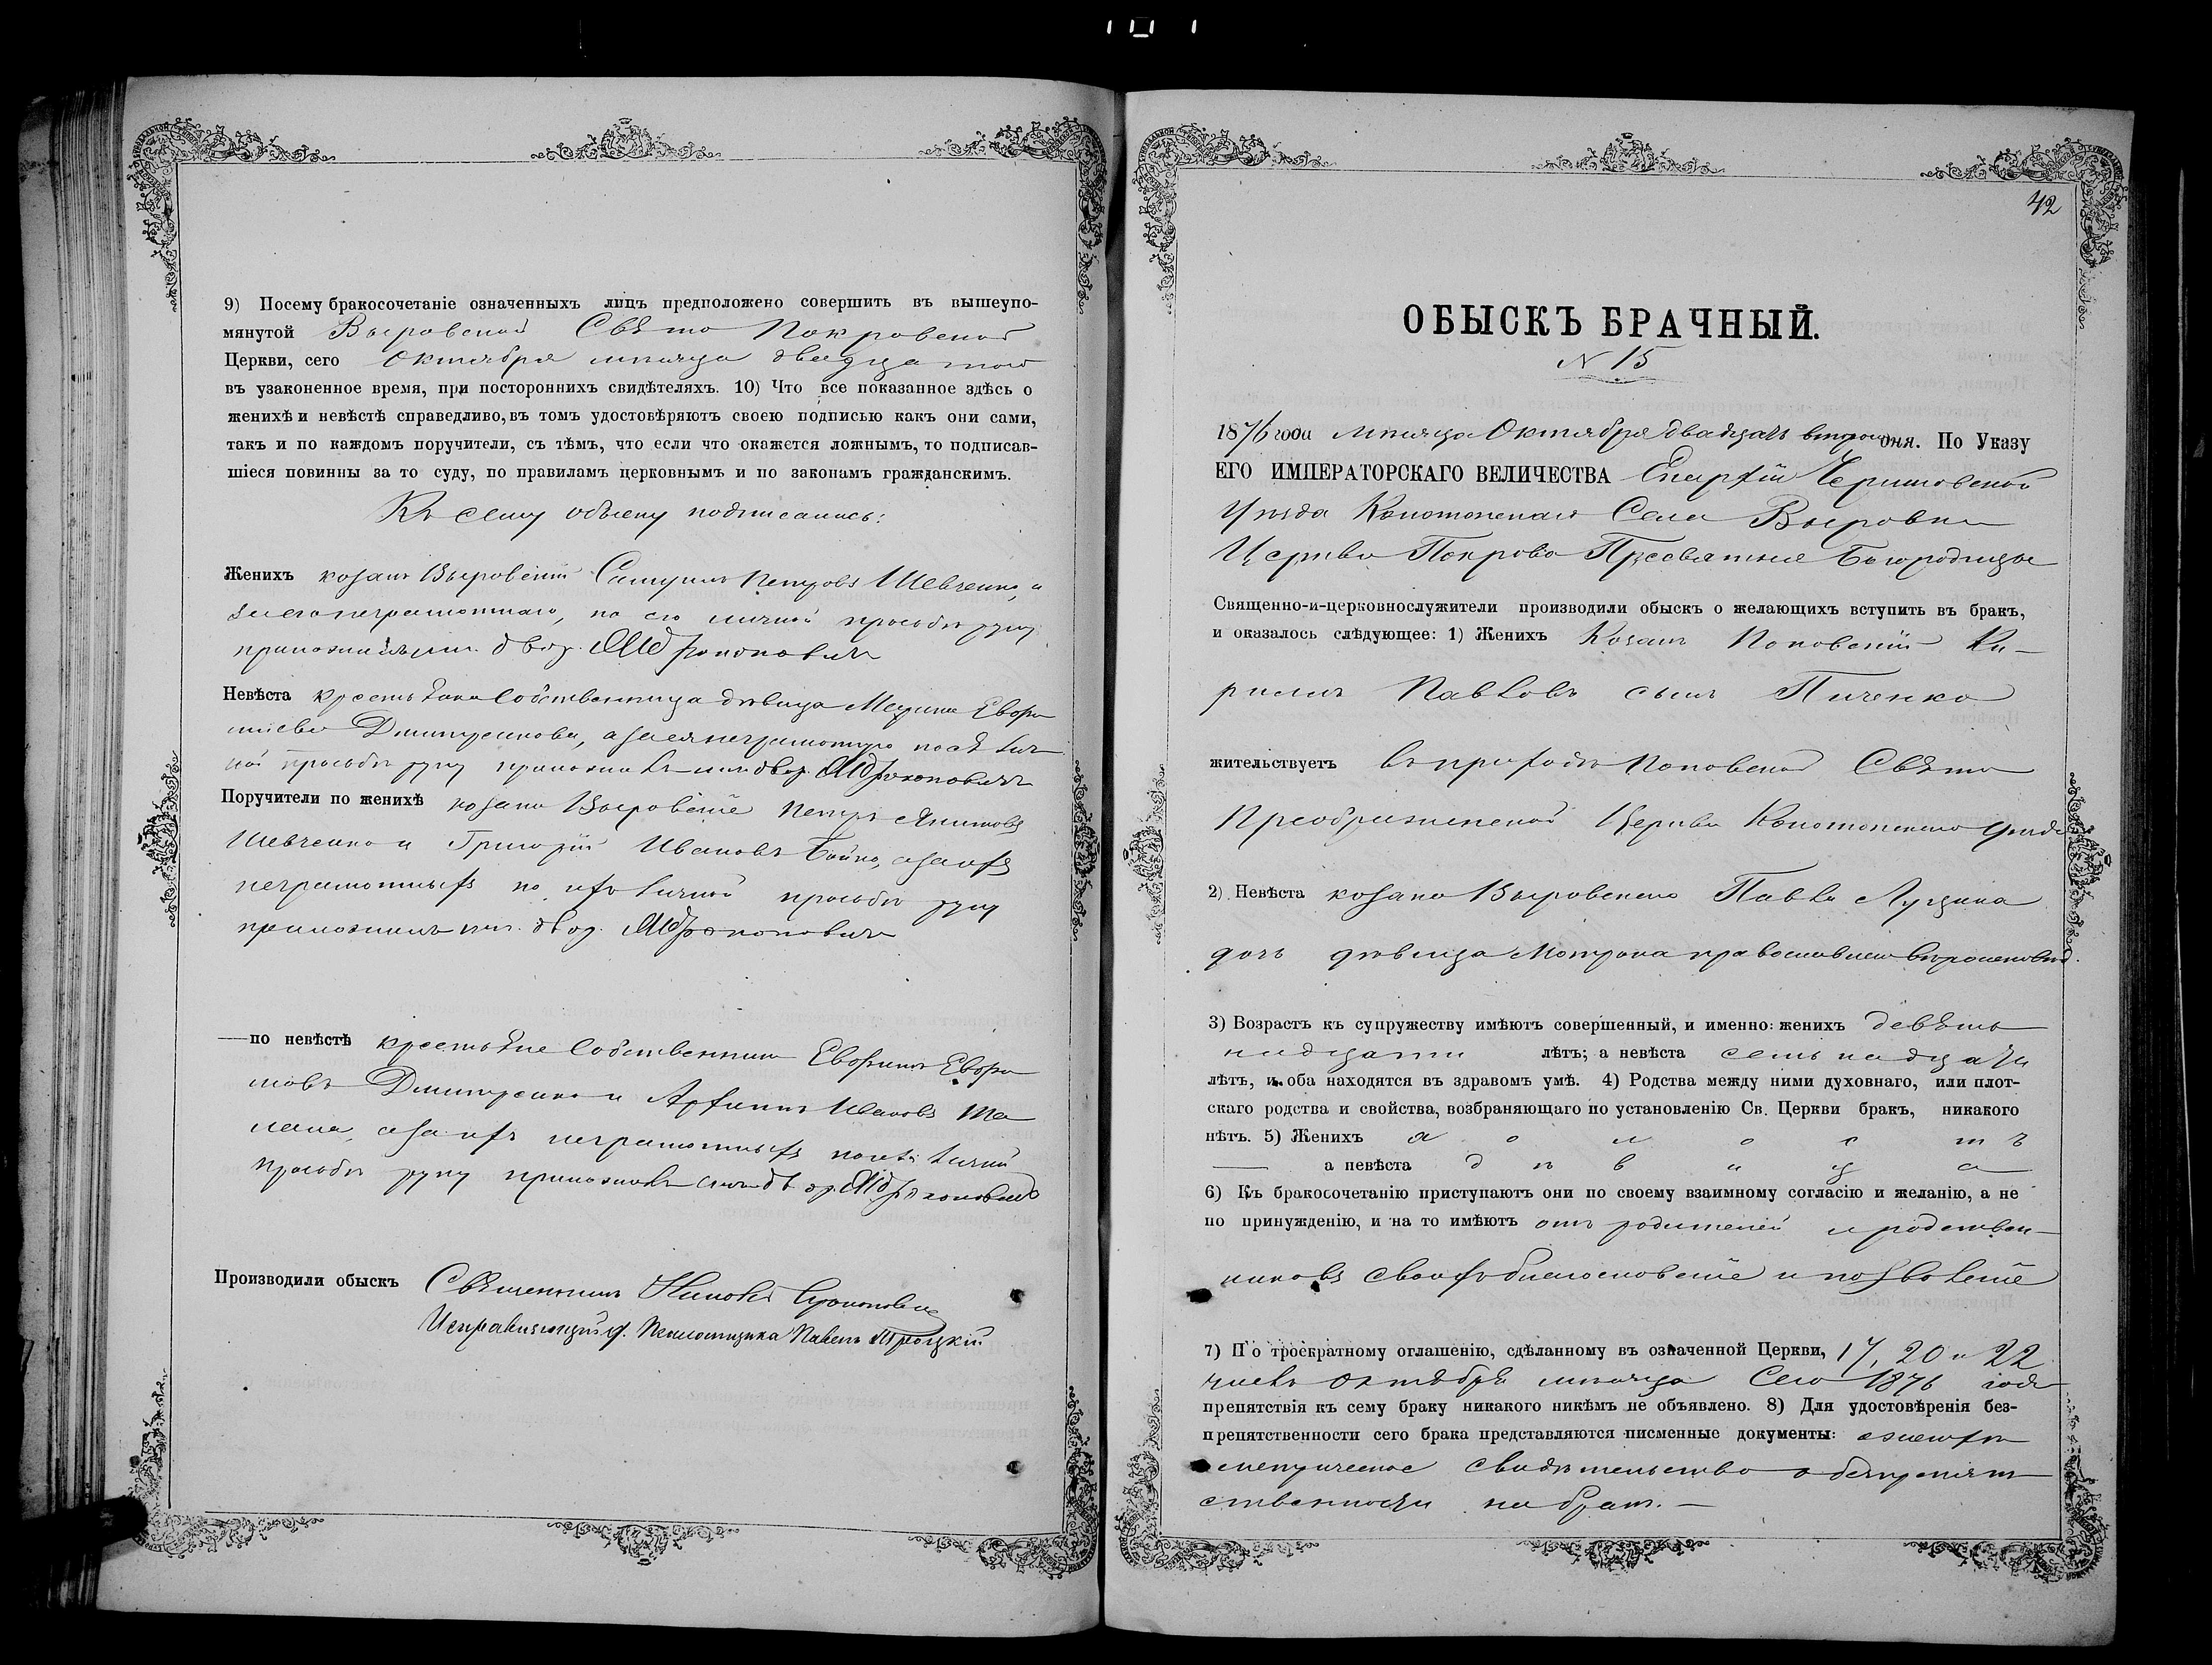 9) Посему бракосочетаніе означенныхъ лицъ предположено совершить въ вышеупо-
мянутой Выровской Свято Покровской
Церкви, сего Октября мѣсяца двадцатого
въ узаконенное время, при постороннихъ свидѣтеляхъ. 10) Что все показанное здѣсь о
женихѣ и невѣстѣ справедливо, въ томъ удостовѣряютъ своею подписью какъ они сами,
такъ и по каждомъ поручители, съ тѣмъ, что если что окажется ложнымъ, то подписав-
шіеся повинны за то суду, по правиламъ церковнымъ и по законамъ гражданскимъ.
Къ сему обыску подписались:
Женихъ козакъ Выровскій Петровъ Шевченко, а
за него неграмотнаго, по его личной просьбѣ руку
приложилъ двор.
Невѣста крестьянка собственница дѣвица Марина Евфи
міева Дмитренкова, а за ея неграмотную по ея лич
ной просьбѣ руку приложилъ двор.
Поручители по женихѣ козаки Выровскіе Петръ Якимовъ
Шевченко и Григорій Ивановъ Бойко, а за ихъ
неграмотныхъ по ихъ личной просьбѣ руку
приложилъ двор.
— по невѣстѣ крестьяне собственники Евфимъ Евфи
мовъ Дмитренко и Архипъ Ивановъ
а за ихъ неграмотныхъ по ихъ личной
просьбѣ руку приложилъ двор.
Производили обыскъ Священникъ
Исправляющій д. Псаломщика Павелъ Троцкій
42
ОБЫСКЪ БРАЧНЫЙ.
N 15
1876 года мѣсяца Октября двадцать втораго дня. По Указу
ЕГО ИМПЕРАТОРСКАГО ВЕЛИЧЕСТВА Епархіи Черниговской
Уѣзда Конотопскаго Села Выровки
Церкви Покрова Пресвятыя Богородицы
Священно-и-церковнослужители производили обыскъ о желающихъ вступить въ бракъ,
и оказалось слѣдующее: 1) Женихъ Козакъ Поповскій Ки-
рилъ Павловъ сынъ Пиченко
жительствуетъ въ приходѣ Поповской Свято
Преображенской Церкви Конотопскаго уѣзда
2) Невѣста козака Выровскаго Павла Луцика
дочь дѣвица Мотрона православнаго вѣроисповѣд.
3) Возрастъ къ супружеству имѣютъ совершенный, и именно: женихъ девять
надцати лѣтъ; а невѣста семьнадцати
лѣтъ, и оба находятся въ здравомъ умѣ. 4) Родства между ними духовнаго, или плот-
скаго родства и свойства, возбраняющаго по установленію Св. Церкви бракъ, никакого
нѣтъ. 5) Женихъ холостъ
— а невѣста дѣвица
6) Къ бракосочетанію приступаютъ они по своему взаимному согласію и желанію, а не
по принужденію, и на то имѣютъ отъ родителей и родствен-
никовъ своихъ благословеніе и позволеніе
7) По троекратному оглашенію, сдѣланному въ означенной Церкви, 17, 20 и 22
числъ октября мѣсяца сего 1876 года
препятствія къ сему браку никакого никѣмъ не объявлено. 8) Для удостовѣренія без-
препятственности сего брака представляются писменные документы: о женихѣ
метрическое свидѣтельство о безпрепят
ственности на бракъ. —